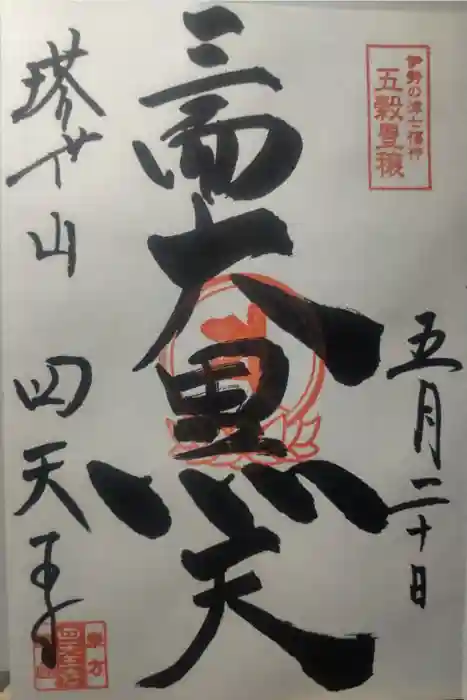 伊勢の津七福神
五穀豊穣
五月二十日
大黒天
塔世山 四天王寺